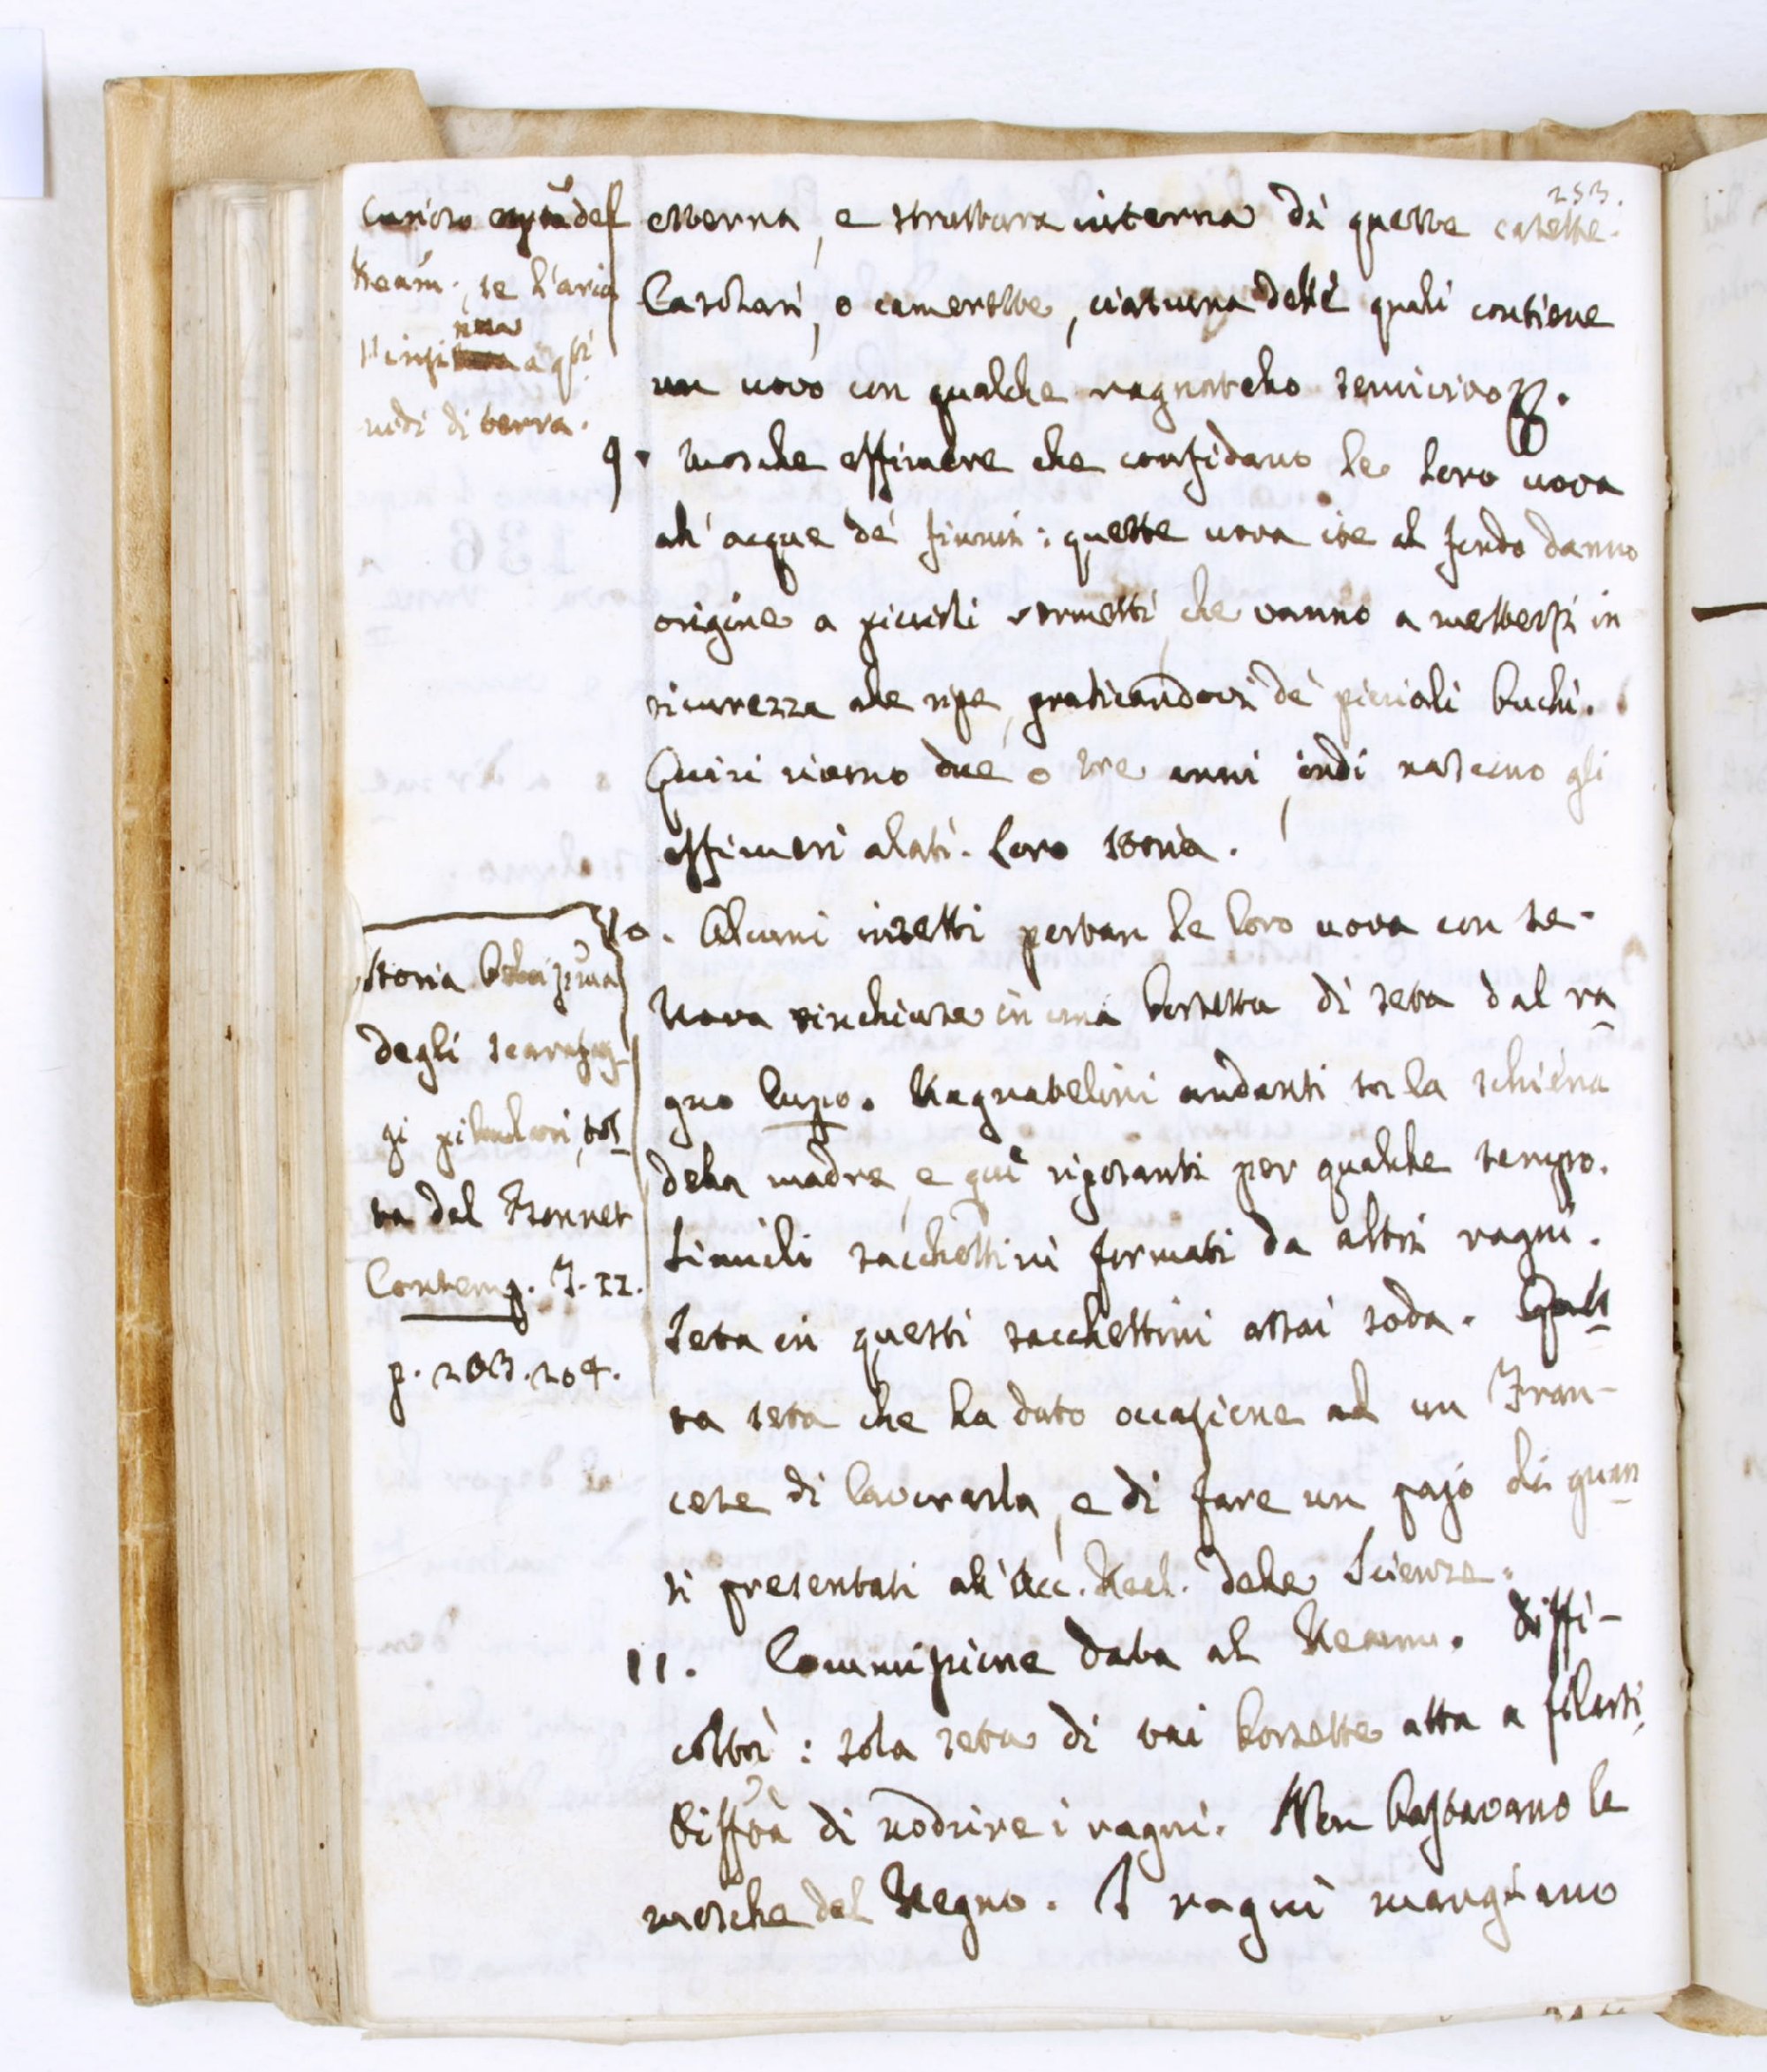 253.
esterna, e struttura interna di queste casette.
Casolari, o camerette, ciascuna delle quali contiene
un uovo con qualche ragnatelo semivivo
9. Mosche effimere che confidano le loro uova
all'acque de' fiumi: queste uova ite al fondo danno
origine a piccioli vermetti che vanno a mettersi in
sicurezza alle ripe, praticandovi de' piccioli buchi.
Quivi vivono due o tre anni, indi nascono gli
effimeri alati. Loro storia.
10. Alcuni insetti portan le loro uova con se.
Uova rinchiuse in una borsetta di seta dal ra
gno lupo. Ragnatelini andanti sor la schiena
della madre, e qui riposanti per qualche tempo.
Simili sacchettini formati da altri ragni.
Seta in questi sacchettini assai soda. Ques
ta seta che ha dato occasione ad un Fran-
cese di lavorarla, e di fare un pajo di guan
ti presentati all'Acc. Real. delle Scienze.
11. Commissione data al Reaum. Diffi-
coltà: sola seta di tai borsette atta a filarsi,
Diffltà di nodrire i ragni. Non bastavano le
mosche del Regno. I ragni mangiano
Curioso del
Reaum., se l'aria
s'insinua a qsti
nidi di terra.
Storia bellissima
degli scarafag-
gi pilulari, tol
ta dal Bonnet
Contemp. T. II.
p. 203. 204.